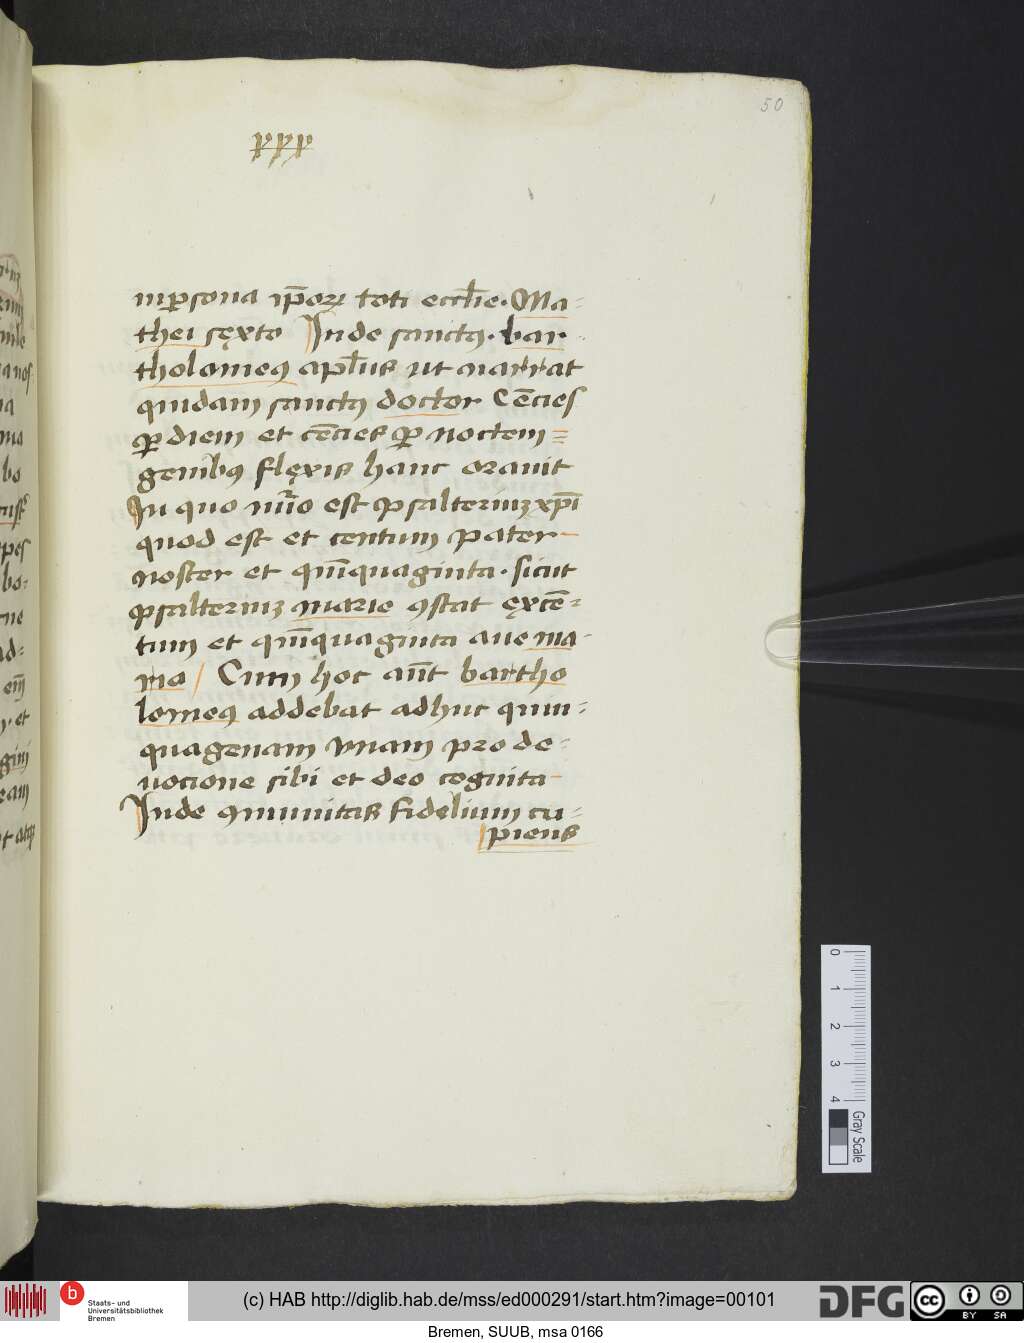 50
xxx
in p̲sona ip̄oꝝ toti eccl̄ie. Ma=
thei sęxto Inde sanctꝯ. bar
tholomeꝯ apl̄us ut narrat
quidam sanctꝯ doctor Cēcies
ꝑ diem et cēcies ꝑ noctem =
genibꝯ flęxis hanc orauit
In quo nūo est psalteriuꝫ xp̄i
quod est et centum pater-
noster et qīnquaginta. sicut
psalteriuꝫ marie ꝯstat ęxcē=
tum et qīnquaginta aue ma-
ria / Cum hoc aūt bartho
lomeꝯ addebat adhuc quin=
quagenam vnam pro de=
uocione sibi et deo cognita-
Inde ꝯmunitas fidelium cu=
piens
0 1 2 3 4
Gray Scale
b
Staats- und
Universitätsbibliothek
Bremen
(c) HAB http://diglib.hab.de/mss/ed000291/start.htm?image=00101
DFG
cc
BY SA
Bremen, SUUB, msa 0166